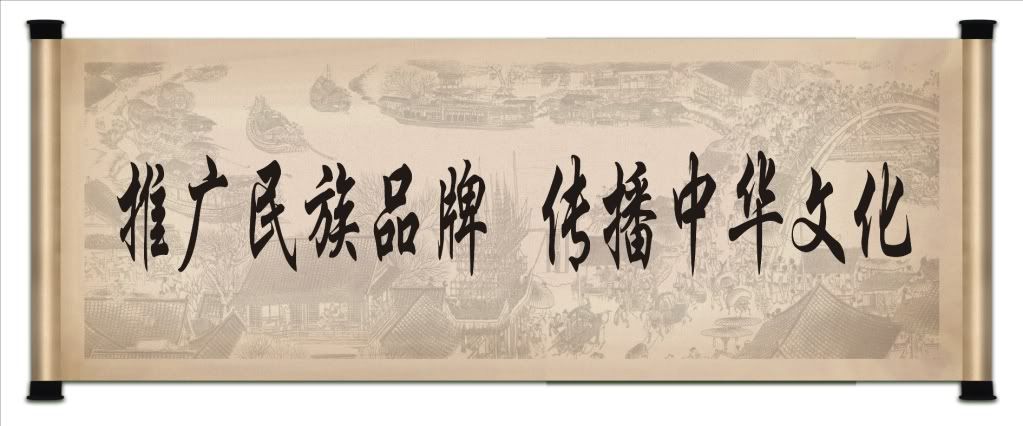 推广民族品牌 传播中华文化